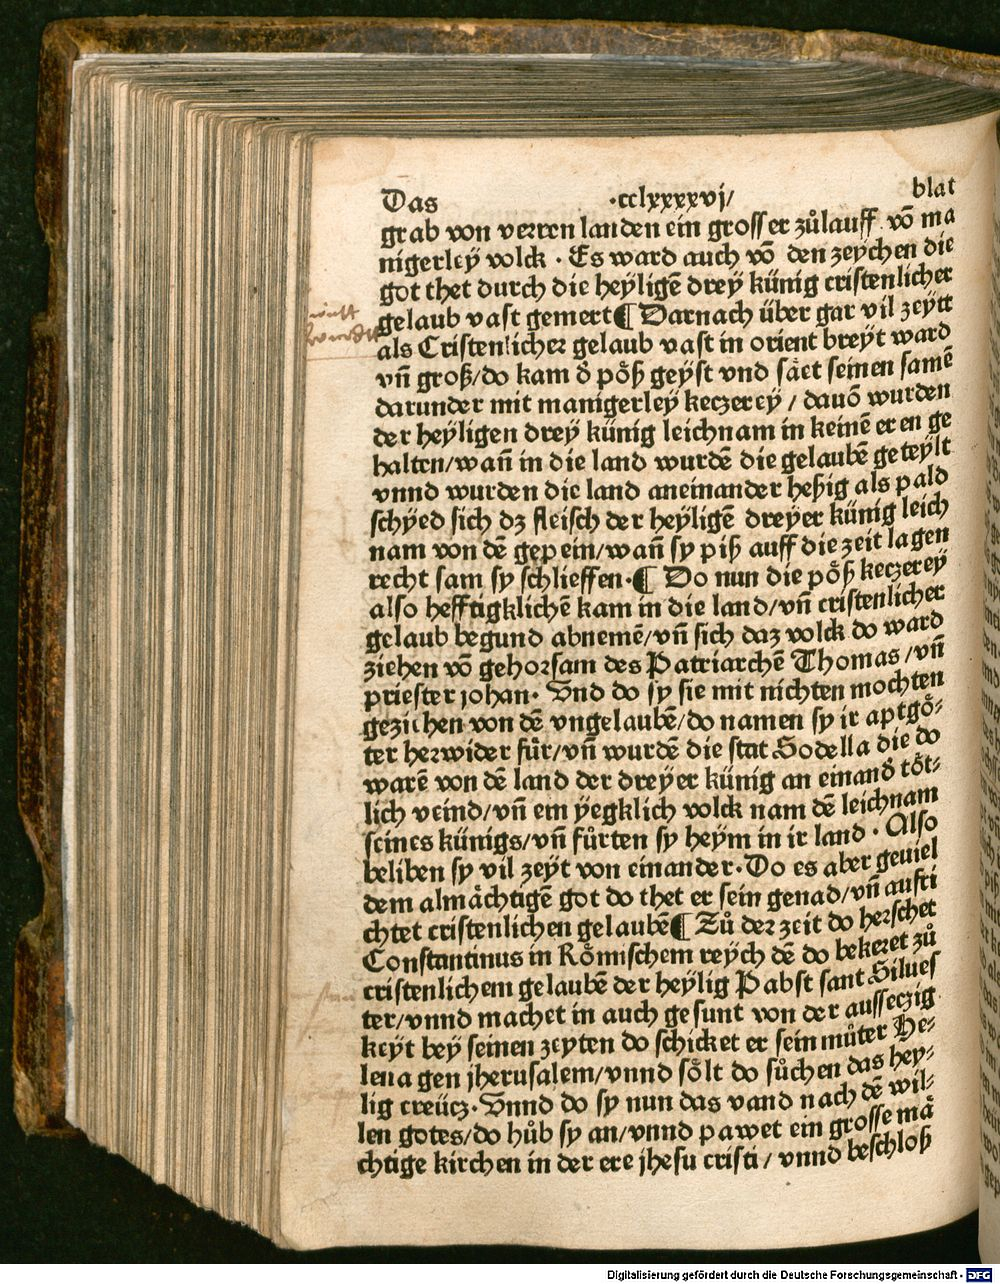 Das ·cclxxxxvj/ blat
grab von verren landen ein grosser zůlauff võ ma
nigerleÿ volck · Es ward auch võ den zeÿchen die
got thet durch die heÿligẽ dreÿ künig cristenlicher
gelaub vast gemert¶ Darnach über gar vil zeÿtt
als Cristenlicher gelaub vast in orient breÿt ward
vñ groß/do kam d̕ pöß geÿst vnd säet seinen samẽ
darunder mit manigerleÿ keczereÿ / dauõ wurden
der heÿligen dreÿ künig leichnam in keinẽ eren ge
halten/wañ in die land wurdẽ die gelaubẽ geteÿlt
vnnd wurden die land aneinander heßig als pald
schÿed sich dz fleisch der heÿligẽ dreÿer künig leich
nam von dẽ gepein/wañ sy piß auff die zeit lagen
recht sam sy schlieffen·¶ Do nun die pöß keczereÿ
also hefftigklichẽ kam in die land/vñ cristenlicher
gelaub begund abnemẽ/vñ sich daz volck do ward
ziehen võ gehorsam des Patriarchẽ Thomas /vñ
priester johan· Vnd do sy sie mit nichten mochten
geziehen von dẽ vngelaubẽ/do namen sy ir aptgö⸗
ter herwider für/vñ wurdẽ die stat Sodella die do
warẽ von dẽ land der dreÿer künig an einand̕ töt⸗
lich veind/vñ ein ÿegklich volck nam dẽ leichnam
seines künigs/vñ fůrten sy heÿm in ir land · Also
beliben sy vil zeÿt von einander·Do es aber geuiel
dem almächtigẽ got do thet er sein genad/vñ aufri
chtet cristenlichen gelaubẽ¶ Zů der zeit do herschet
Constantinus in Römischem reÿch dẽ do bekeret zů
cristenlichem gelaubẽ der heÿlig Pabst sant Silues
ter/vnnd machet in auch gesunt von der ausseczig
keÿt beÿ seinen zeyten do schicket er sein můter He⸗
lena gen jherusalem/vnnd sölt do sůchen das hey⸗
lig creücz·Vnnd do sy nun das vand nach dẽ wil⸗
len gotes/do hůb sy an/vnnd pawet ein grosse mä
chtige kirchen in der ere jhesu cristi/ vnnd beschloß
Digitalisierung gefördert durch die Deutsche Forschungsgemeinschaft - DFG